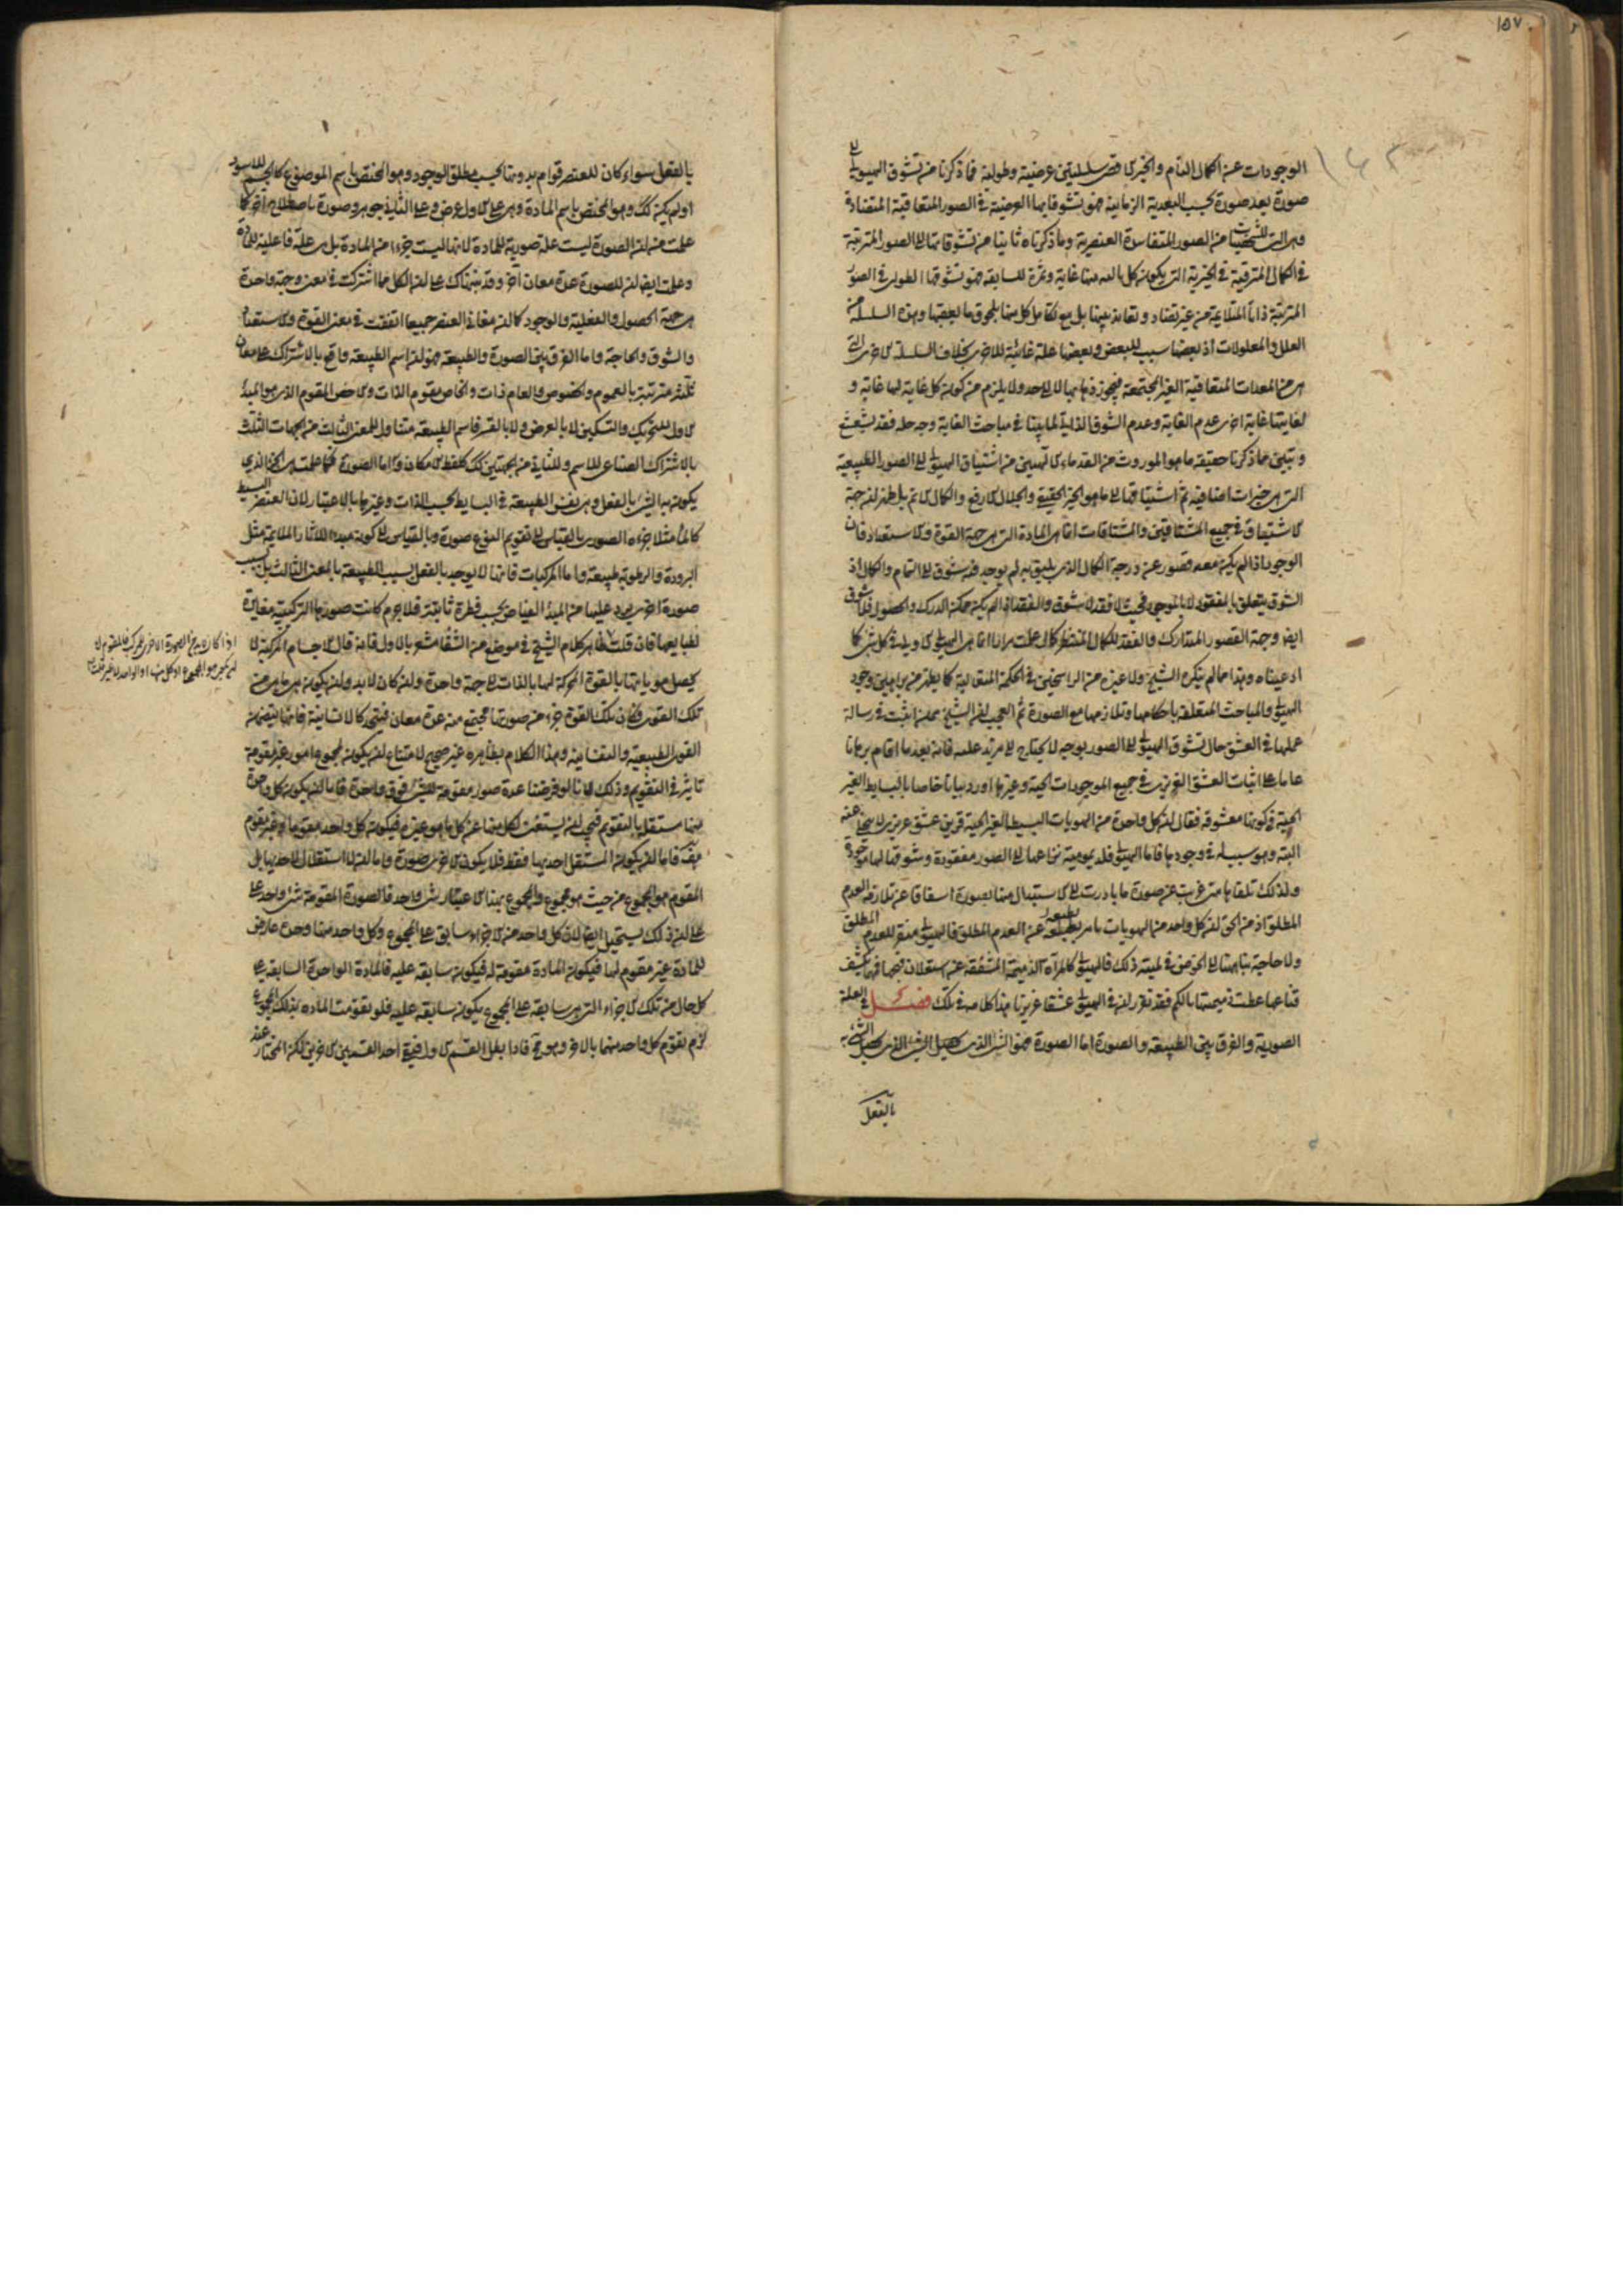 ١٥٧
١٦٣
الوجودات عن الكمال التام والخير الاقصى سلسلتين عرضية وطولية فما ذكرنا من تشوق الهيولى الى
صورة بعد صورة بحسب البعدية الزمانية هو تشوقاتها العرضية في الصور المتعاقبة المتضادة
وهي التي للشخصيات من الصور المتفاسدة العنصرية وما ذكرناه ثانيا من تشوقاتها الى الصور المترتبة
في الكمال المترقية في الخيرية التي يكون كل تالية منها غاية وثمرة للسابقة هو تشوقها الطولي في الصور
المترتبة ذاتا المتلائمة من غير تضاد وتعاند بينها بل مع تكامل كل منها بلحوق ما يعقبها وهذه السلسلة من
العلل والمعلولات اذ بعضها سبب للبعض وبعضها علة غائية للاخرى بخلاف السلسلة الاخرى التي
هي من المعدات المتعاقبة الغير المجتمعة فيجوز ذهابها لا الى حد ولا يلزم من كون كل غاية لها غاية و
لغايتها غاية اخرى عدم الغاية وعدم الشوق الذاتي لما بينا في مباحث الغاية وجه حله فقد ثبت
وتبين مما ذكرنا حقيقة ما هو الموروث من القدماء الالهيين من اشتياق الهيولى الى الصور الطبيعية
التي هي خيرات اضافية ثم اشتياقها الى ما هو الخير الحقيقي والجلال الارفع والكمال الاتم بل ظهر ان جهة
الاشتياق في جميع المشتاقين والمشتاقات انما هي المادة التي هي جهة القوة والاستعداد فان
الوجود اذا لم يكن معه قصور عن درجة الكمال الذي يليق به لم يوجد فيه شوق الى التمام والكمال اذ
الشوق يتعلق بالمفقود لا بالموجود فحيث لا فقد لا شوق والفقد اذا لم يكن ممكن الدرك والحصول فلا شوق
ايضا وجهة القصور المتدارك والفقد للكمال المنتظر كما علمت مرارا انما هي الهيولى الاولى في كل شيء كما
ادعيناه وهذا مما لم ينكره الشيخ ولا غيره من الراسخين في الحكمة المتعالية كما يظهر من براهين وجود
الهيولى والمباحث المتعلقة باحكامها وتلازمها مع الصورة ثم العجب ان الشيخ ممن اثبت في رسالة
عملها في العشق حال تشوق الهيولى الى الصور بوجه لا يحتاج الى مزيد عليه فانه بعد ما اقام برهانا
عاما على اثبات العشق الغريزي في جميع الموجودات الحية وغيرها اورد بيانا خاصا بالبسايط الغير
الحية في كونها معشوقة فقال ان كل واحدة من الهويات البسيطة الغير الحية قرين عشق غريزي لا يتخلى عنه
البتة وهو سبب له في وجودها فاما الهيولى فلديمومية نزاعها الى الصور مفقودة وشوقها لها موجودة
ولذلك تلقاها متى عريت عن صورة ما بادرت الى الاستبدال منها بصورة اشفاقا عن ملازمة العدم
المطلق اذ من الحق ان كل واحد من الهويات نافر بطبعه عن العدم المطلق فالهيولى منفر للعدم المطلق
ولا حاجة بنا ههنا الى الخوض في لمية ذلك فالهيولى كالمرأة الذميمة المشفقة عن استعلان قبحها فمهما يكشف
قناعها غطت ذميمتها بالكم فقد تقرر ان في الهيولى عشقا غريزيا هذا كلامه في تلك فصل في العلة
الصورية والفرق بين الطبيعة والصورة اما الصورة فهو الشيء الذي يحصل الشيء به
بالفعل
بالفعل سواء كان للعنصر قوام بدونها بحسب مطلق الوجود وهو المختص باسم الموضوع كالجسم للاسود
او لم يكن كك وهو المختص باسم المادة وهي على الاول عرض وعلى الثاني جوهر وصورة باصطلاح اخر كما
علمت من ان الصورة ليست علة صورية للمادة لانها ليست جزءا من المادة بل هي علة فاعلية للمادة
وعلمت ايضا ان للصورة عدة معان اخر وقد بيناك على ان الكل مما اشتركت في معنى وجهة واحدة
هي جهة الحصول والفعلية والوجود كما ان معاني العنصر جميعا اتفقت في معنى القوة والاستعداد
والشوق والحاجة واما الفرق بين الصورة والطبيعة فهو ان اسم الطبيعة واقع بالاشتراك على معان
ثلثة مترتبة بالعموم والخصوص فالعام ذات والخاص مقوم الذات والاخص المقوم الذي هو المبدأ
الاول للتحريك والتسكين لا بالعرض ولا بالقسر فاسم الطبيعة متناول للمعنى الثالث من الجهات الثلث
بالاشتراك الصناعي للاسم وللثاني من الجهتين كك كلفظ الامكان واما الصورة فكما علمت هي الجزء الذي
يكون به الشيء بالفعل وهي نفس الطبيعة في البسايط بحسب الذات وغيرها بالاعتبار لان العنصر البسيط
كالماء مثلا جزءه الصوري بالقياس الى تقويم النوع صورة وبالقياس الى كونه مبدءا للاثار الملائمة مثل
البرودة والرطوبة طبيعة واما المركبات فانها لا يوجد بالفعل بسبب الطبيعة بالمعنى الثالث بل بسبب
صورة اخرى يرد عليها من المبدأ الفياض بحسب فطرة ثانية فلا جرم كانت صورها التركيبية مغايرة
لطبايعها فان قلت ظاهر كلام الشيخ في موضع من الشفا مشعر بالاول فانه قال الاجسام المركبة لا
يحصل هوياتها بالقوة المحركة لها بالذات الى جهة واحدة وان كان لا بد وان يكون هي ما هي من
تلك القوى فكان تلك القوة جزء من صورتها مجتمع منه عدة معان فتتحد كالانسانية فانها يتضمن
القوى الطبيعية والنفسانية وهذا الكلام بظاهره غير صحيح لامتناع ان يكون لمجموع امور غير مقومة
تاثير في التقويم وذلك لانا لو فرضنا عدة صور مقومة لشيء فوق واحدة فاما ان يكون كل واحدة
منها مستقلا بالتقويم فيجب ان يستغنى لكل منها عن كل ما هو غيره فيكون كل واحد مقوما وغير مقوم
هف فاما ان يكون المستقل احديهما فقط فلا يكون الاخرى صورة واما ان لا استقلال لاحديهما بل
المقوم هو المجموع من حيث هو مجموع والمجموع بهذا الاعتبار شيء واحد فالصورة المقومة شيء واحد على
على ان ذلك يستحيل ايضا لان كل واحد من الاجزاء سابق على المجموع وكل واحد منها وحده عارض
للمادة غير مقوم لها فيكون المادة مقومة له فيكون سابقة عليه فالمادة الواحدة السابقة على
كل حال من تلك الاجزاء التي هي سابقة على المجموع يكون سابقة عليه فلو تقومت المادة بذلك المجموع
لزم تقوم كل واحد منهما بالاخر وهو مح فاذا بطل القسم الاول فيبقى احد القسمين الاخرين لكن المختار عند